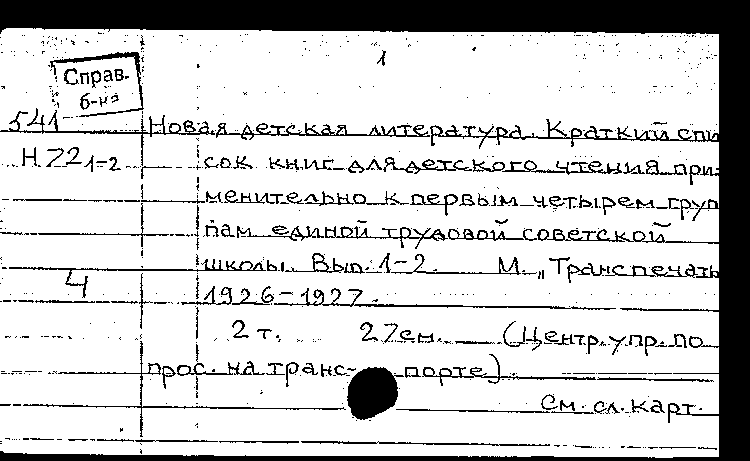 1
Справ.
б-ка
541
Н 72 1-2
4
Новая детская литература. Краткий спи
сок книг для детского чтения при-
менительно к первым четырем груп
пам единой трудовой советской
школы. Вып. 1-2. М. „Транспечать
1926-1927.
2 т. 27см. (Центр. упр. по
прос. на транс- порте).
См. сл. карт.